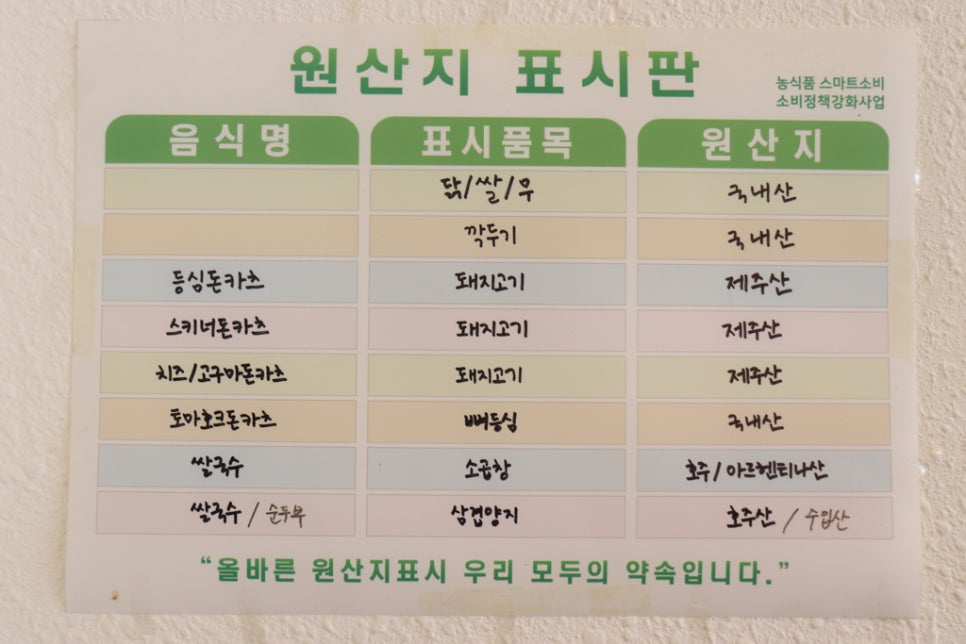 원산지 표시판
농식품 스마트소비
소비정책강화사업
음식명 표시품목 원산지
닭/쌀/무 국내산
깍두기 국내산
등심돈카츠 돼지고기 제주산
스키너돈카츠 돼지고기 제주산
치즈/고구마돈카츠 돼지고기 제주산
토마호크돈카츠 뼈등심 국내산
쌀국수 소곱창 호주/아르헨티나산
쌀국수 / 순두부 삼겹양지 호주산 / 수입산
“올바른 원산지표시 우리 모두의 약속입니다.”